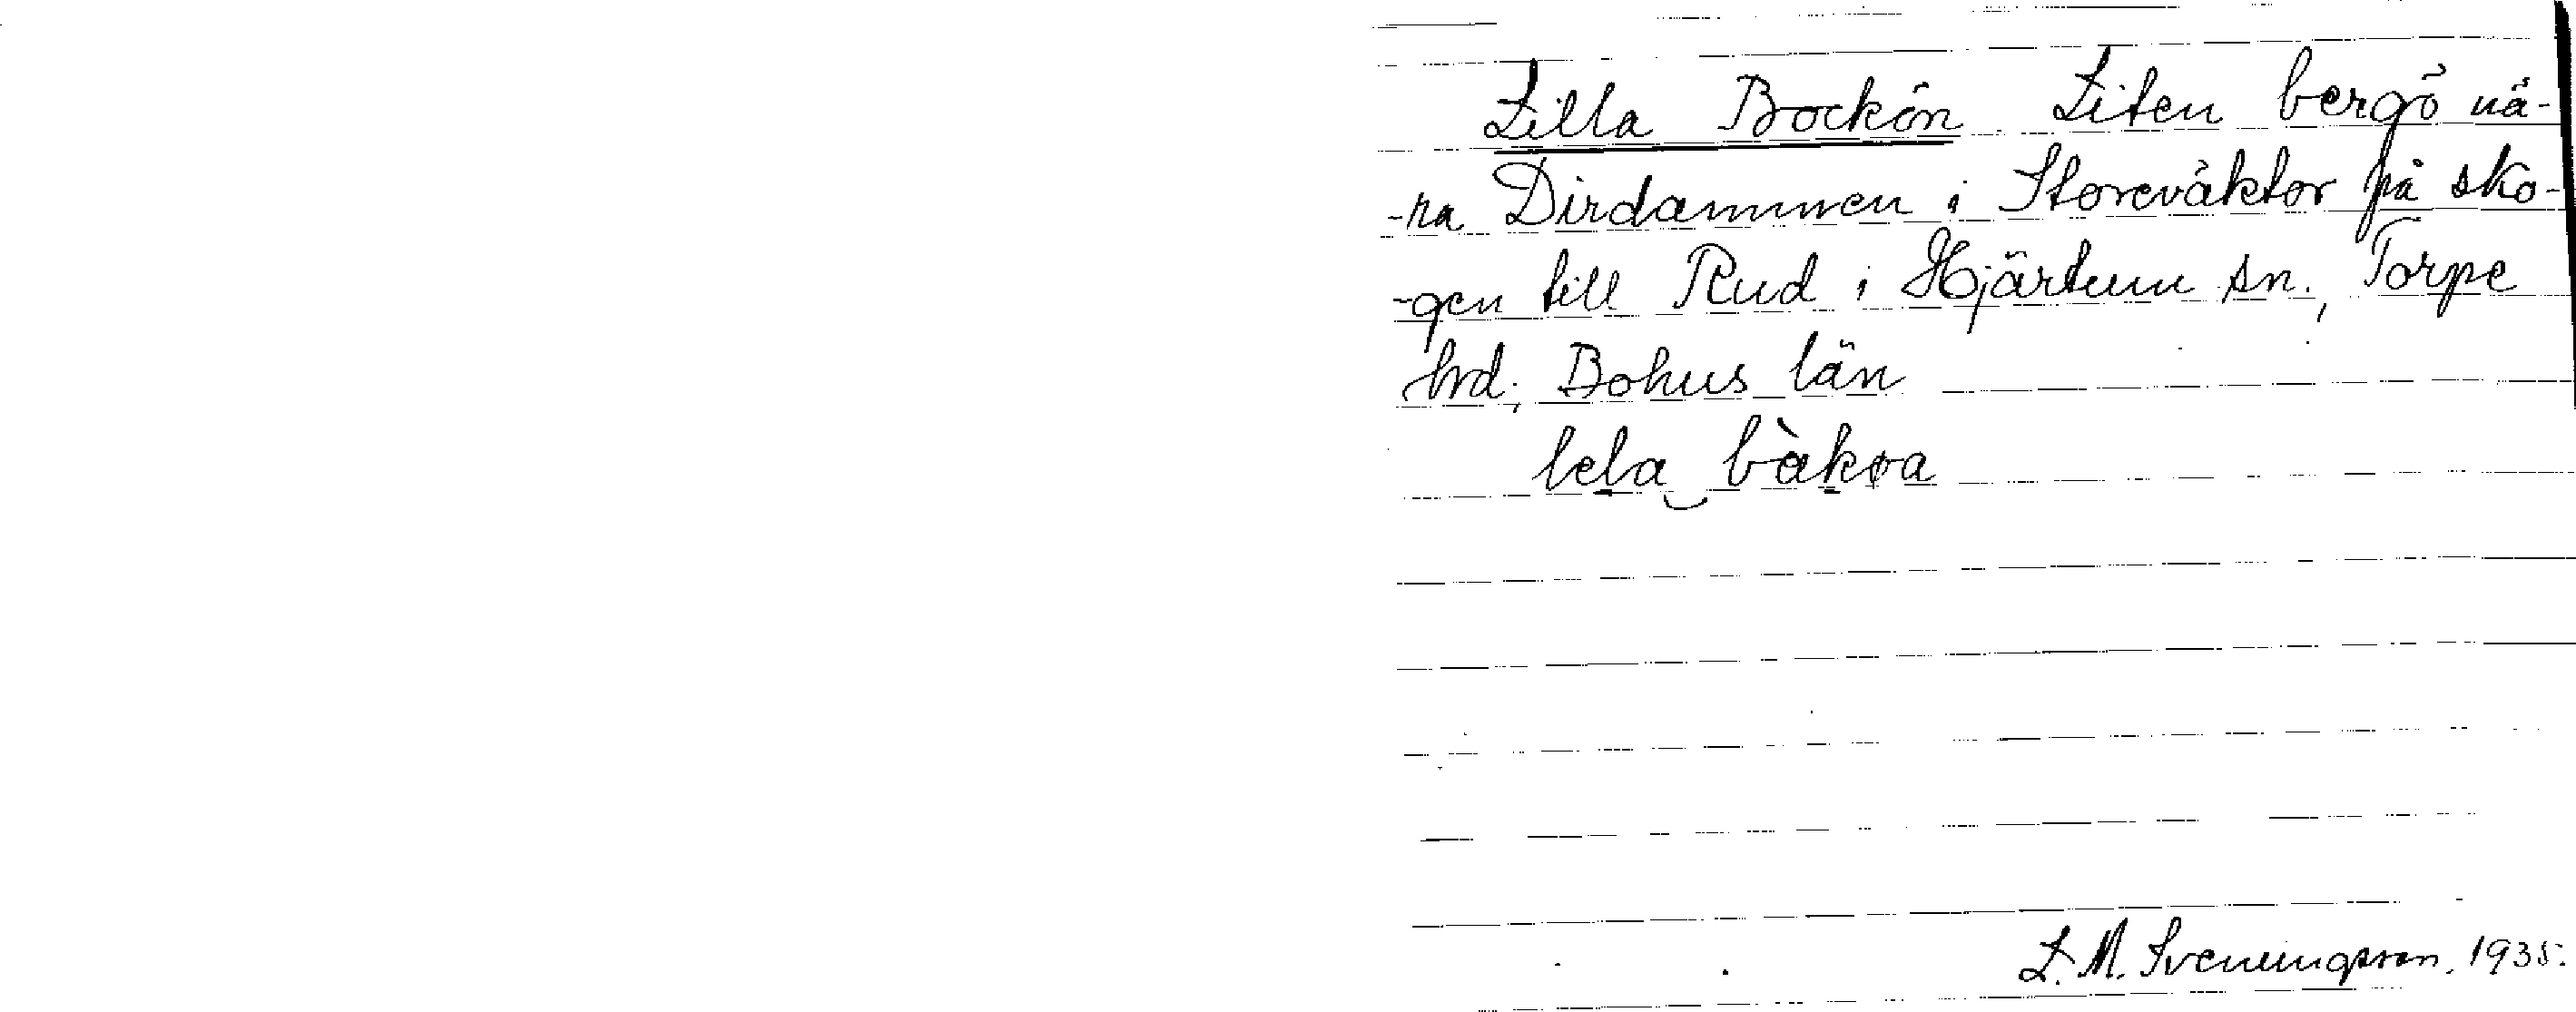 Lilla Bockön Liten bergö nä-
-ra Dirdammen i Storevåktor på sko-
-gen till Rud i Hjärtum sn., Torpe
hrd; Bohus län
lela bàkøa
L. M. Svenungsson. 1935.